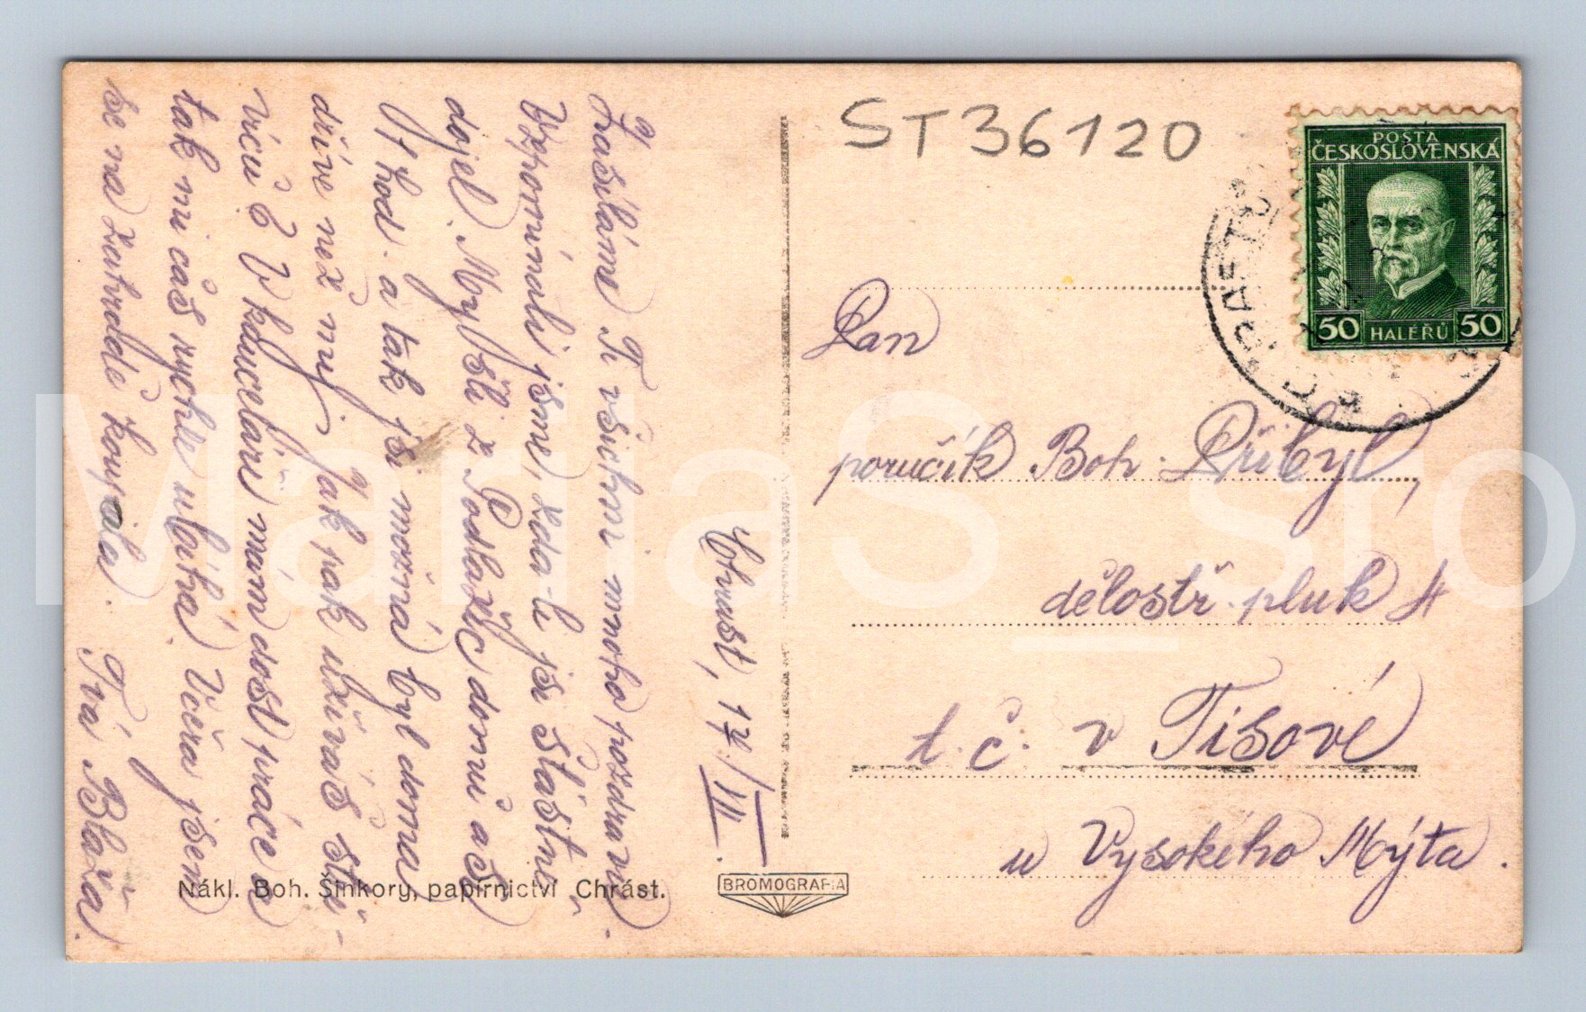 ST36120
POŠTA
ČESKOSLOVENSKÁ
50 HALÉŘŮ 50
Pan
poručík Boh. Přibyl,
dělostř. pluk 4
t. č. v Tisové
u Vysokého Mýta.
Chrást, 17/VII.
Zasíláme Ti všichni mnoho pozdravů
Vzpomínali jsme, zda-li jsi šťastně
dojel. Myšli z Podlažic domů a až
st hod. a tak jsi možná byl doma
dříve než my. Jak pak užíváš
věcí? V kanceláři mám dost práce a
tak mi čas rychle ubíhá. Včera jsem
se na Zahrádě koupala. Tvá Blaža.
Nákl. Boh. Šinkory, papírnictví Chrást.
BROMOGRAFIA
MariaS_sro